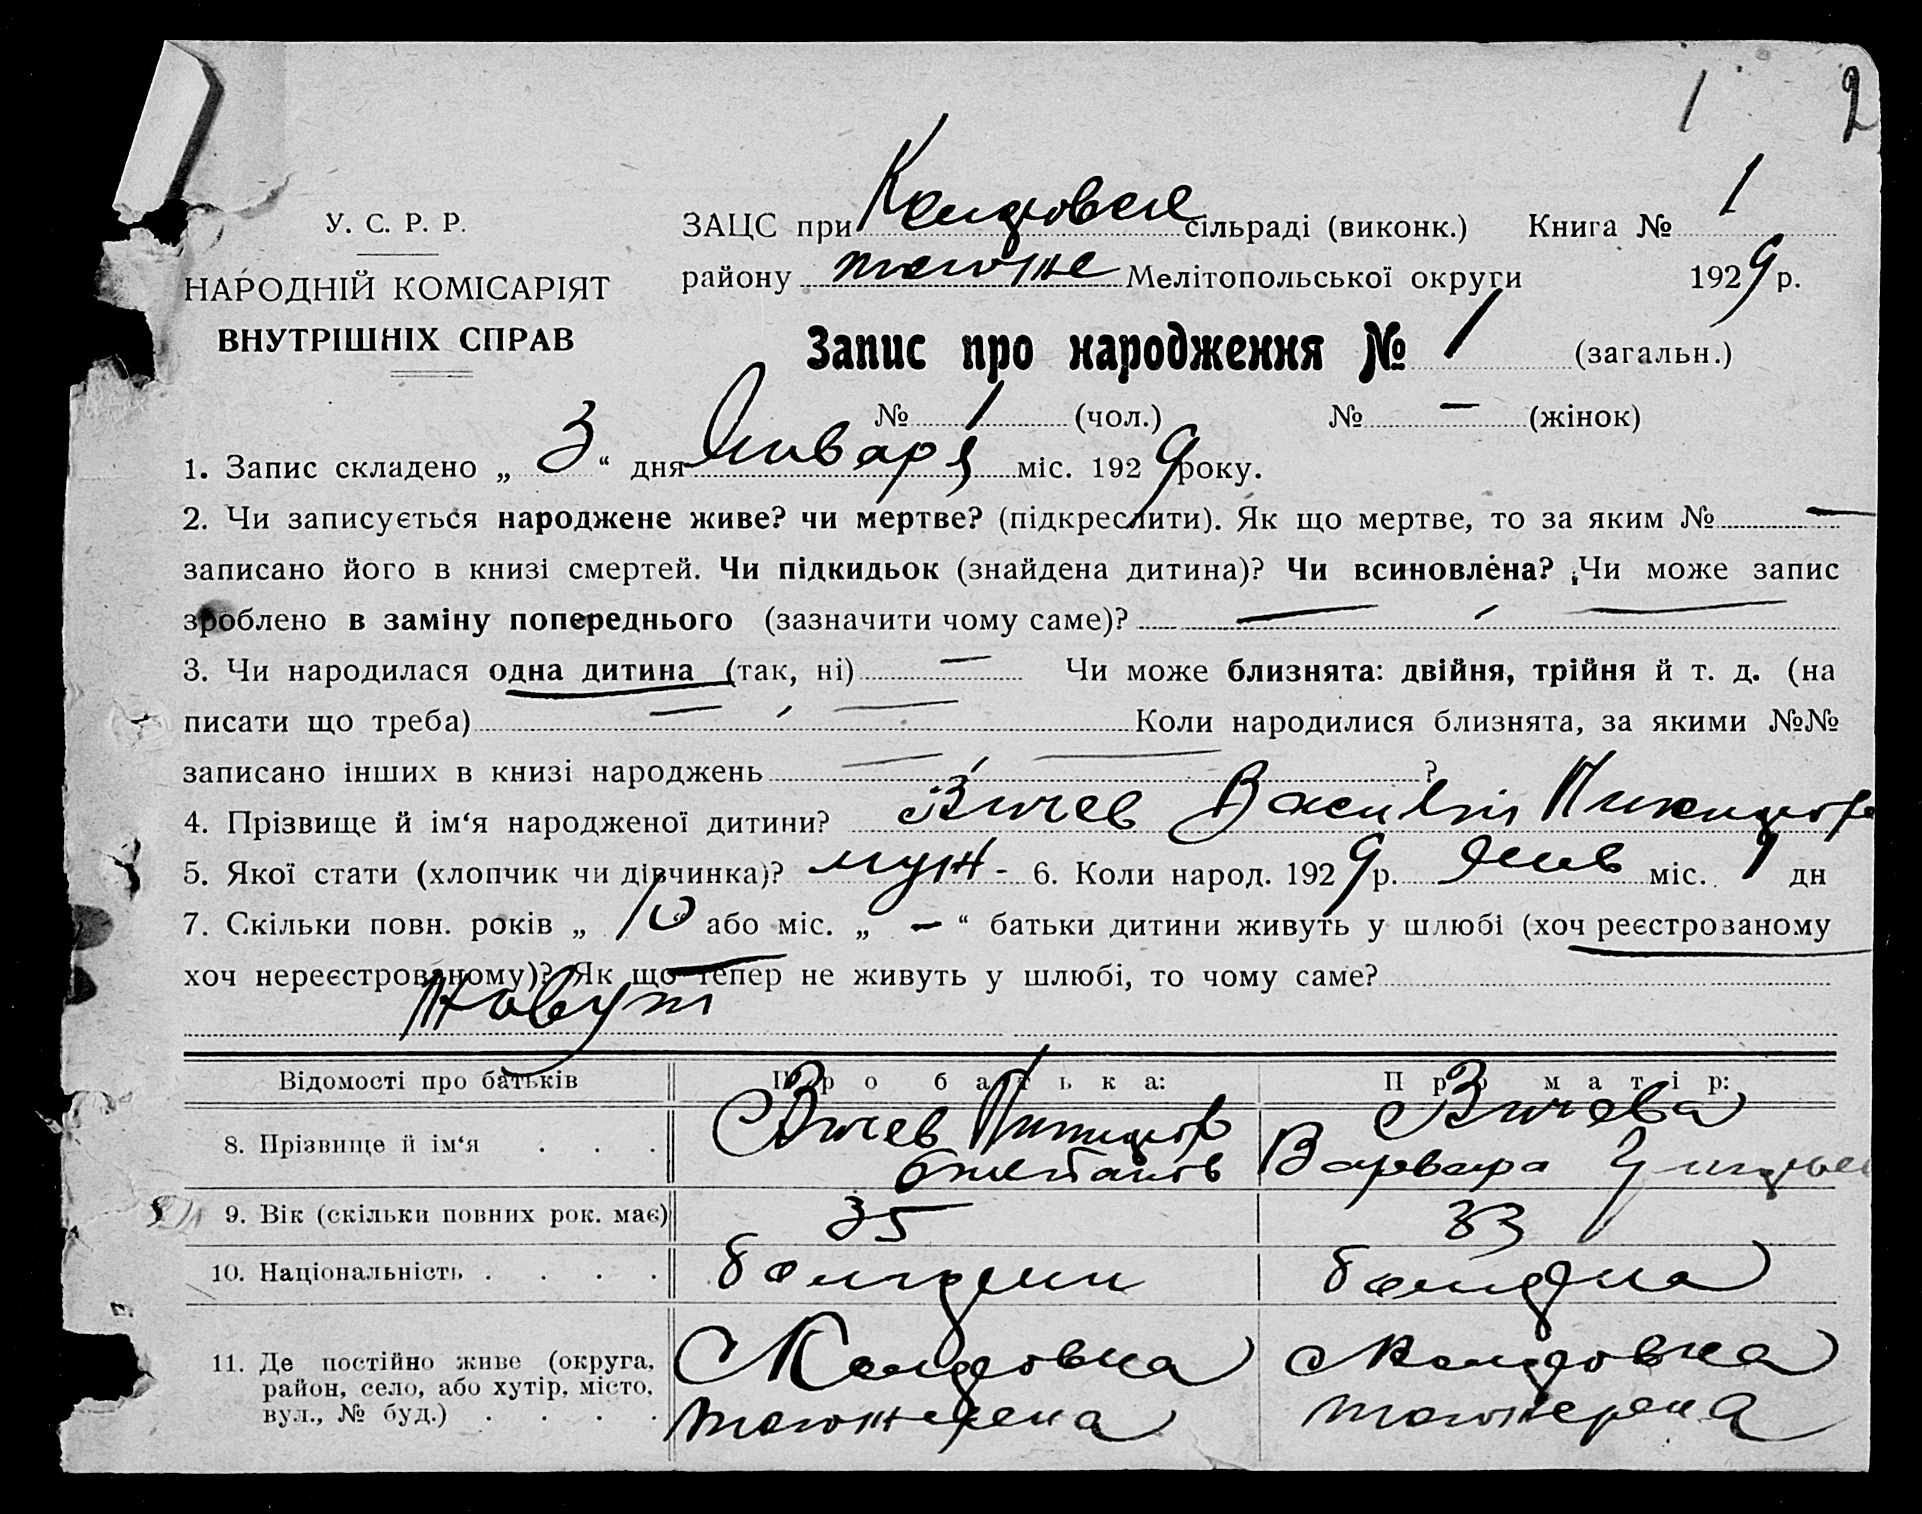 1 2
У. С. Р. Р.
НАРОДНІЙ КОМІСАРІЯТ
ВНУТРІШНІХ СПРАВ
ЗАЦС при сільраді (виконк.) Книга № 1
району Мелітопольської округи 1929 р.
Запис про народження № 1 (загальн.)
№ 1 (чол.) № — (жінок)
1. Запис складено „ 3 “ дня Января міс. 1929 року.
2. Чи записується народжене живе? чи мертве? (підкреслити). Як що мертве, то за яким № —
записано його в книзі смертей. Чи підкидьок (знайдена дитина)? Чи всиновлена? Чи може запис
зроблено в заміну попереднього (зазначити чому саме)? —
3. Чи народилася одна дитина (так, ні) — Чи може близнята: двійня, трійня й т. д. (на
писати що треба) — Коли народилися близнята, за якими №№
записано інших в книзі народжень — ?
4. Прізвище й ім‘я народженої дитини? Василий
5. Якої стати (хлопчик чи дівчинка)? муж - 6. Коли народ. 1929 р. Янв міс. 1 дн
7. Скільки повн. років „ 10 “ або міс. „ — “ батьки дитини живуть у шлюбі (хоч реєстрованому
хоч нереєстрованому)? Як що тепер не живуть у шлюбі, то чому саме?
живут
Відомості про батьків Про батька: Про матір:
8. Прізвище й ім‘я . . .
Варвара
9. Вік (скільки повних рок. має) 35 33
10. Національність . . . . болгарин болгарка
11. Де постійно живе (округа,
район, село, або хутір, місто,
вул., № буд.) . . . .